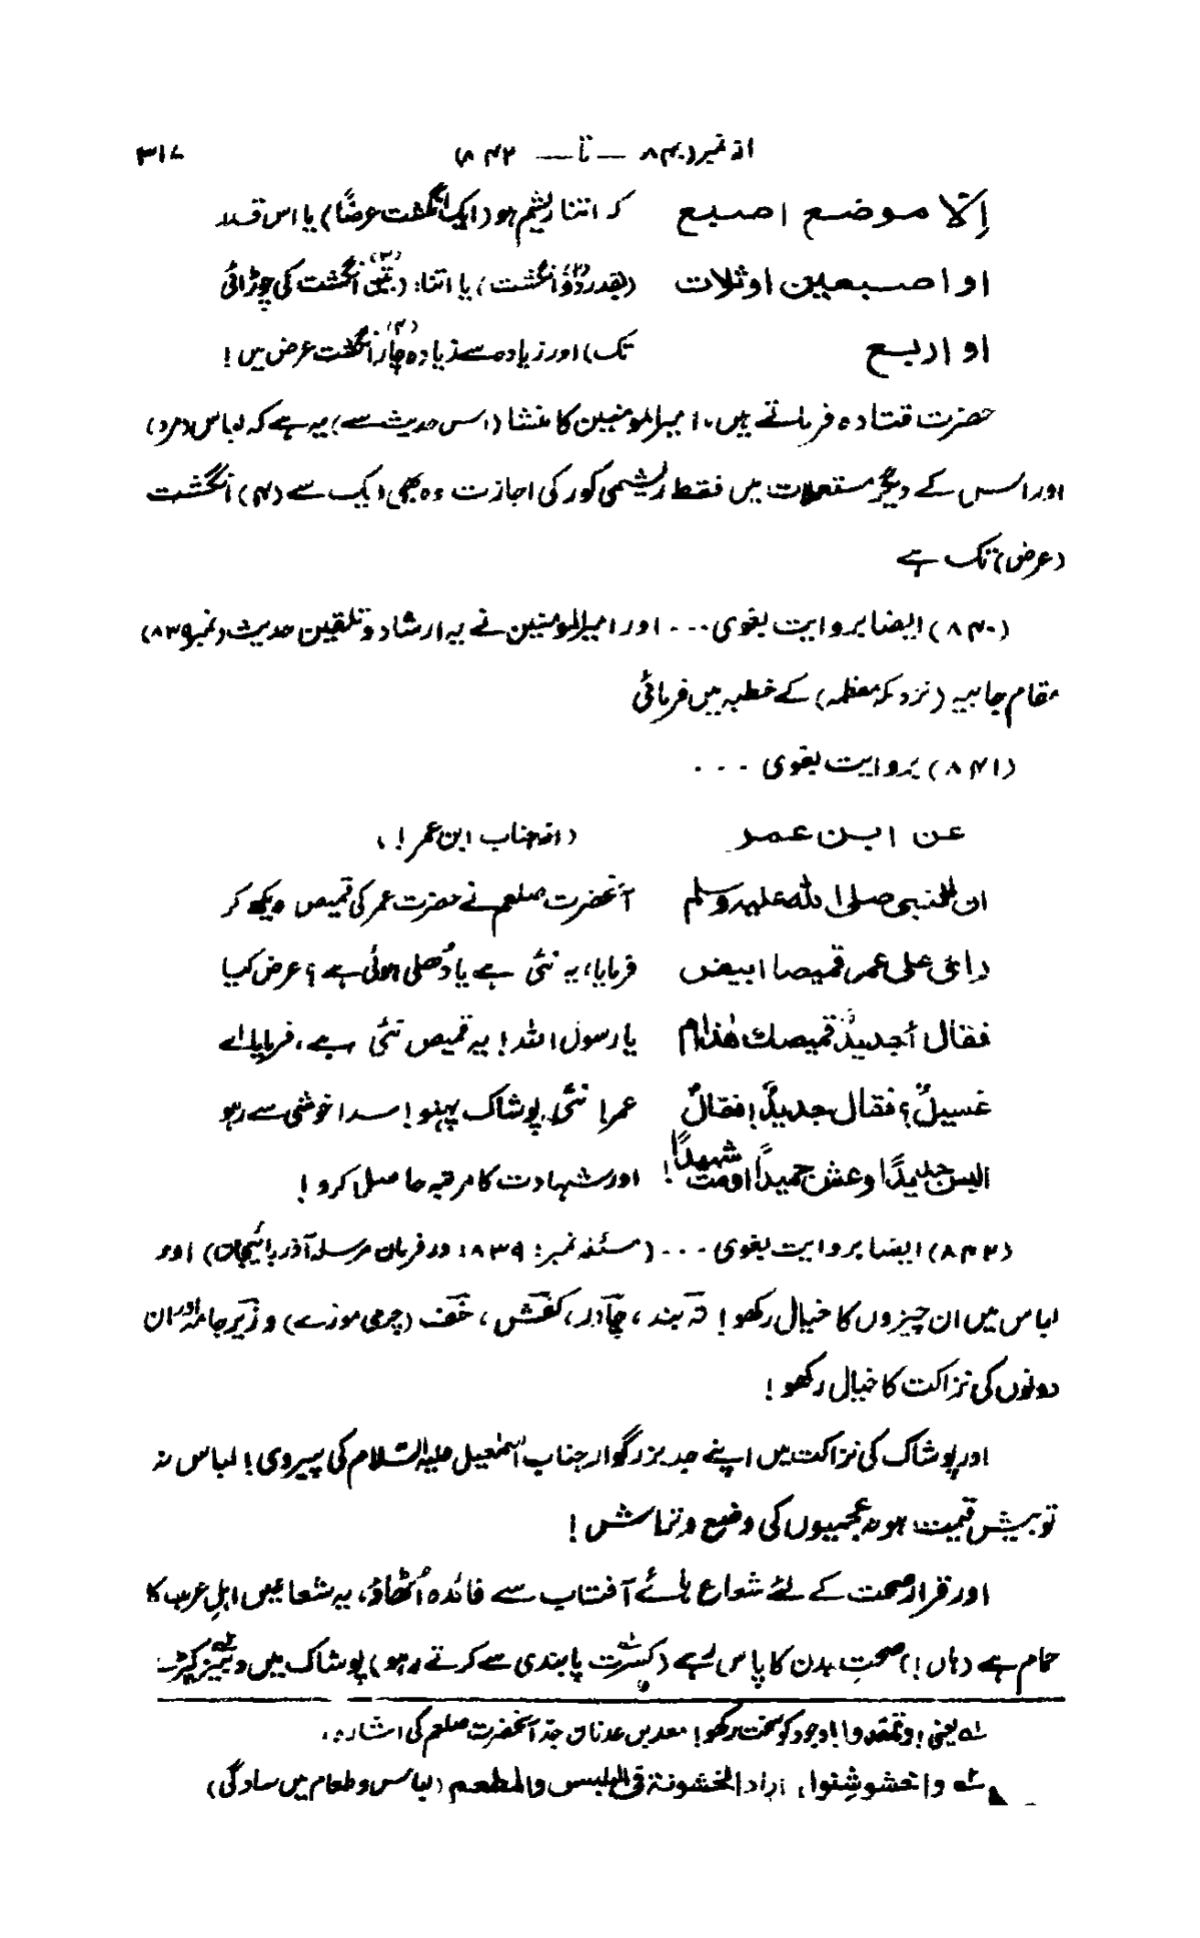 از نمبر (۸۴۰ — تا — ۸۴۲) ۳۱۷
اِلّا موضع اصبع کہ اتنا ریشم ہو (ایک انگشت عرضًا) یا اس قدر
او اصبعین اوثلاث (بقدر دو (۲) انگشت) یا اتنا: (تین (۳) انگشت کی چوڑائی
او اربع تک) اور زیادہ سے زیادہ چار (۴) انگشت عرض میں!
حضرت قتادہ فرماتے ہیں، امیرالمومنین کا منشا (اس حدیث سے) یہ ہے کہ لباس (مرد)
اور اس کے دیگر مستعملات میں فقط ریشمی کور کی اجازت وہ بھی ایک سے (۴) انگشت
(عرض) تک ہے
(۸۴۰) ایضا بروایت بغوی ... اور امیرالمومنین نے یہ ارشاد و تلقین حدیث (نمبر ۸۳۹)
مقام جابیہ (نزد مکہ معظمہ) کے خطبہ میں فرمائی
(۸۴۱) بروایت بغوی ...
عن ابن عمر (از جناب ابن عمر!)
ان النبی صلی اللہ علیہ وسلم آنحضرت صلعم نے حضرت عمر کی قمیص دیکھ کر
رای علی عمر قمیصا ابیض فرمایا، یہ نئی ہے یا دُھلی ہوئی ہے؟ عرض کیا
فقال اُجدیدٌ قمیصك ھٰذا ام یا رسول اللہ! یہ قمیص نئی ہے، فرمایا اے
غسیلٌ؟ فقال جدیدٌ! فقال عمر! نئی پوشاک پہنو! سدا خوشی سے رہو
البس جدیدًا وعش حمیدًا ومت شھیدًا! اور شہادت کا مرتبہ حاصل کرو!
(۸۴۲) ایضا بروایت بغوی ... (مسئلہ نمبر: ۸۳۹: در فرمان مرسلہ آذربائیجان) اور
لباس میں ان چیزوں کا خیال رکھو! تہ بند، چادر، کفش، خف (چرمی موزے) و زیر جامہ اور ان
دونوں کی نزاکت کا خیال رکھو!
اور پوشاک کی نزاکت میں اپنے جد بزرگوار جناب اسمٰعیل علیہ السلام کی پیروی! لباس نہ
تو بیش قیمت ہو نہ عجمیوں کی وضع و تماش!
اور قرار صحت کے لئے شعاع ہائے آفتاب سے فائدہ اُٹھاؤ، یہ شعاعیں اہلِ عرب کا
حمام ہے (ہاں!) صحتِ بدن کا پاس رہے (کسرت پابندی سے کرتے رہو) پوشاک میں دبیز کپڑے
لہ یعنی! وتمعددوا! وجود کو سخت رکھو! معد بن عدنان جد آنحضرت صلعم کی اشارہ،
لہ واخشوشنوا، اراد الخشونۃ فی الملبس والمطعم (لباس و طعام میں سادگی)